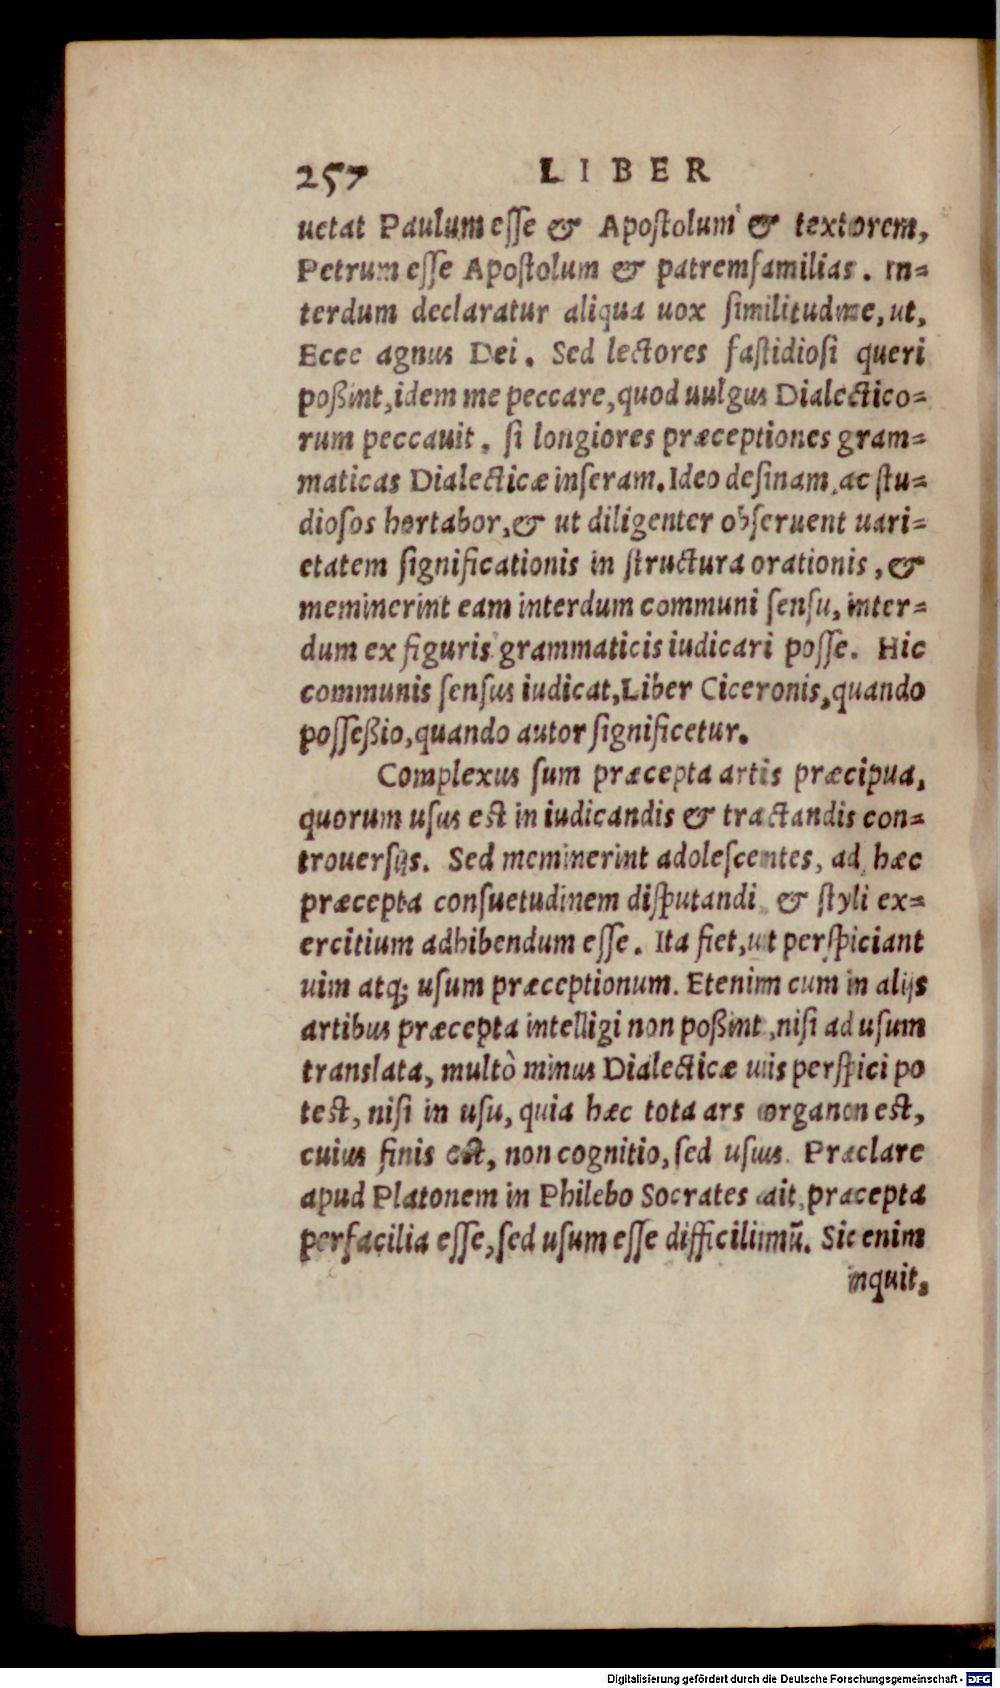 257 LIBER
uetat Paulum esse & Apostolum & textorem,
Petrum esse Apostolum & patremfamilias. In=
terdum declaratur aliqua uox similitudine, ut,
Ecce agnus Dei. Sed lectores fastidiosi queri
poßint, idem me peccare, quod uulgus Dialectico=
rum peccauit, si longiores præceptiones gram=
maticas Dialecticæ inseram. Ideo desinam, ac stu=
diosos hortabor, & ut diligenter obseruent uari=
etatem significationis in structura orationis, &
meminerint eam interdum communi sensu, inter=
dum ex figuris grammaticis iudicari posse. Hic
communis sensus iudicat, Liber Ciceronis, quando
posseßio, quando autor significetur.
Complexus sum præcepta artis præcipua,
quorum usus est in iudicandis & tractandis con=
trouersijs. Sed meminerint adolescentes, ad hæc
præcepta consuetudinem disputandi & styli ex=
ercitium adhibendum esse. Ita fiet, ut perspiciant
uim atq; usum præceptionum. Etenim cum in alijs
artibus præcepta intelligi non poßint, nisi ad usum
translata, multò minus Dialecticæ uis perspici po
test, nisi in usu, quia hæc tota ars organon est,
cuius finis est, non cognitio, sed usus. Præclare
apud Platonem in Philebo Socrates ait, præcepta
perfacilia esse, sed usum esse difficilimū. Sic enim
inquit,
Digitalisierung gefördert durch die Deutsche Forschungsgemeinschaft - DFG